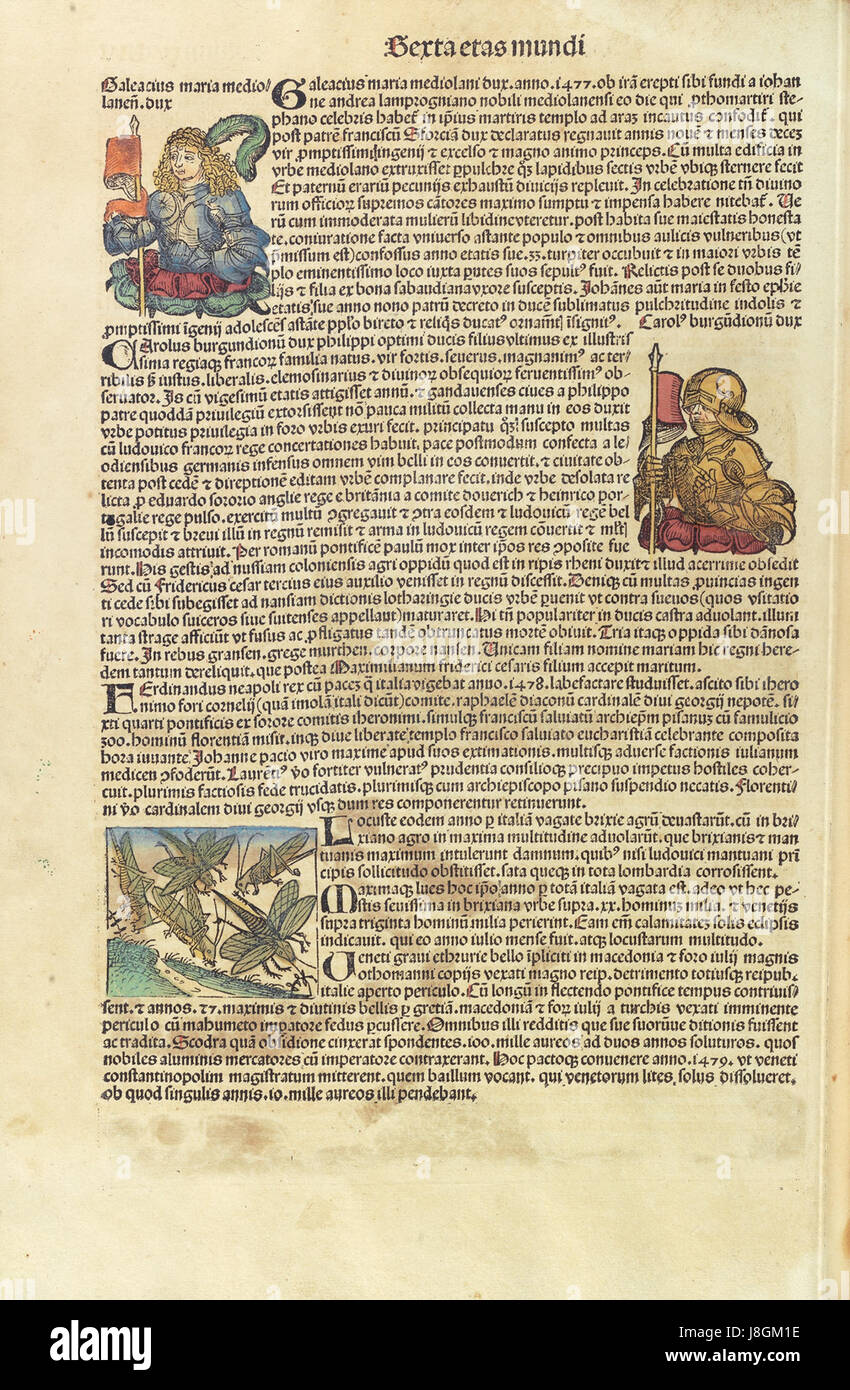 Sexta etas mundi
Galeacius maria medio/
lanen̄. dux
Galeacius maria mediolani dux. anno. 1477. ob irā erepti sibi fundi a iohan
ne andrea lamprogniano nobili mediolanensi eo die qui ꝓthomartiri ste-
phano celebris habet̄ in ip̄ius martiris templo ad aras incautus confodit̄. qui
post patrē franciscū Sforciā dux declaratus regnauit annis nouē ⁊ menses decez
vir ꝓmptissimi ingenij ⁊ excelso ⁊ magno animo princeps. Cū multa edificia in
vrbe mediolano extruxisset ꝑpulchre qꝫ lapidibus sectis vrbē vbiqꝫ sternere fecit
Et paternū erariū pecunijs exhaustū diuicijs repleuit. In celebratione tn̄ diuino
rum officioꝝ supremos cātores maximo sumptu ⁊ impensa habere nitebat̄. Ue
rū cum immoderata mulierū libidine vteretur. post habita sue maiestatis honesta
te. coniuratione facta vniuerso astante populo ⁊ omnibus aulicis vulneribus (vt
p̄missum est) confossus anno etatis sue. 33. turpiter occubuit ⁊ in maiori vrbis tē
plo eminentissimo loco iuxta ꝑntes suos sepultꝰ fuit. Relictis post se duobus fi-
lijs ⁊ filia ex bona sabaudiana vxore susceptis. Johānes aūt maria in festo ephie
etatis sue anno nono patrū decreto in ducē sublimatus pulchritudine indolis ⁊
ꝓmptissimi īgenij adolescēs astāte pplo bireto ⁊ reliqs ducatꝰ ornamētꝭ īsignitꝰ.
Carolꝰ burgūdionū dux
Carolus burgundionū dux philippi optimi ducis filius vltimus ex illustris
sima regiaqꝫ francoꝝ familia natus. vir fortis. seuerus. magnanimꝰ ac ter/
ribilis sꝫ iustus. liberalis. elemosinarius ⁊ diuinoꝝ obsequioꝝ feruentissimꝰ ob-
seruator. Is cū vigesimū etatis attigisset annū. ⁊ gandauenses ciues a philippo
patre quoddā priuilegiū extorsissent nō pauca militū collecta manu in eos duxit
vrbe potitus priuilegia in foro vrbis exuri fecit. principatu qꝫ suscepto multas
cū ludouico francoꝝ rege concertationes habuit. pace postmodum confecta a le/
odiensibus germanis infensus omnem vim belli in eos conuertit. ⁊ ciuitate ob-
tenta post cedē ⁊ direptionē editam vrbē complanare fecit. inde vrbe desolata re
licta ꝓ eduardo sororio anglie rege e britānia a comite douerich ⁊ heinrico por-
tugalie rege pulso. exercitū multū ꝯgregauit ⁊ ꝯtra eosdem ⁊ ludouicū regē bel
lū suscepit ⁊ breui illū in regnū remisit ⁊ arma in ludouicū regem cōuertit ⁊ mltꝭ
incomodis attriuit. Per romanū pontificē paulū mox inter ip̄os res ꝯposite fue
runt. His gestis ad nussiam coloniensis agri oppidū quod est in ripis rheni duxit ⁊ illud acerrime obsedit
Sed cū Fridericus cesar tercius eius auxilio venisset in regnū discessit. Deniqꝫ cū multas ꝓuincias ingen
ti cede sibi subegisset ad nansiam dictionis lotharingie ducis vrbē ꝑuenit vt contra sueuos (quos vsitatio
ri vocabulo suiceros siue suitenses appellant) maturaret. Hi tn̄ populariter in ducis castra aduolant. illum
tanta strage afficiūt vt fusus ac ꝓfligatus tandē obtruncatus mortē obiuit. Tria itaqꝫ oppida sibi dānosa
fuere. In rebus gransen. grege murthen. corpore nansen. Unicam filiam nomine mariam hic regni here-
dem tantum dereliquit. que postea Maximilianum friderici cesaris filium accepit maritum.
Ferdinandus neapoli rex cū pacez q̄ italia vigebat anno. 1478. labefactare studuisset. ascito sibi ihero
nimo fori cornelij (quā imolā itali dicūt) comite. raphaelē diaconū cardinalē diui georgij nepotē. si/
xti quarti pontificis ex sorore comitis iheronimi. simulqꝫ franciscū saluiatū archiepm̄ pisanuz cū famulicio
300. hominū florentiā misit. inqꝫ diue liberate templo francisco saluiato eucharistiā celebrante composita
hora iuuante Johanne pacio viro maxime apud suos extimationis. multisqꝫ aduerse factionis iulianum
medicen ꝯfoderūt. Laurētiꝰ vo fortiter vulneratꝰ prudentia consilioqꝫ precipuo impetus hostiles coher-
cuit. plurimis factiosis fede trucidatis. plurimisqꝫ cum archiepiscopo pisano suspendio necatis. Florenti-
ni vo cardinalem diui georgij vsqꝫ dum res componerentur retinuerunt.
Locuste eodem anno ꝑ italiā vagate brixie agrū deuastarūt. cū in bri/
xiano agro in maxima multitudine aduolarūt. que brixianis ⁊ man
tuanis maximum intulerunt damnum. quibꝰ nisi ludouici mantuani prin
cipis sollicitudo obstitisset. sata queqꝫ in tota lombardia corrosissent.
Maximaqꝫ lues hoc ip̄o anno ꝑ totā italiā vagata est. adeo vt hec pe-
stis seuissima in brixiana vrbe supra. xx. hominuz milia. ⁊ venetijs
supra triginta hominū milia perierint. Eam em̄ calamitatez solis eclipsis
indicauit. qui eo anno iulio mense fuit. atqꝫ locustarum multitudo.
Ueneti graui ethrurie bello īpliciti in macedonia ⁊ foro iulij magnis
othomanni copijs vexati magno reip. detrimento totiusqꝫ reipub.
italie aperto periculo. Cū longū in flectendo pontifice tempus contriuis/
sent. ⁊ annos. 27. maximis ⁊ diutinis bellis ꝑ gretiā. macedoniā ⁊ foꝝ iulij a turchis vexati imminente
periculo cū mahumeto impatore fedus ꝑcussere. Omnibus illi redditis que sue suorūue ditionis fuissent
ac tradita. Scodra quā obsidione cinxerat spondentes. 100. mille aureos ad duos annos soluturos. quos
nobiles aluminis mercatores cū imperatore contraxerant. Hoc pactoqꝫ conuenere anno. 1479. vt veneti
constantinopolim magistratum mitterent. quem baillum vocant. qui venetorum lites solus dissolueret.
ob quod singulis annis. 10. mille aureos illi pendebant.
a
alamy
alamy stock photo
Image ID: J8GM1E
www.alamy.com